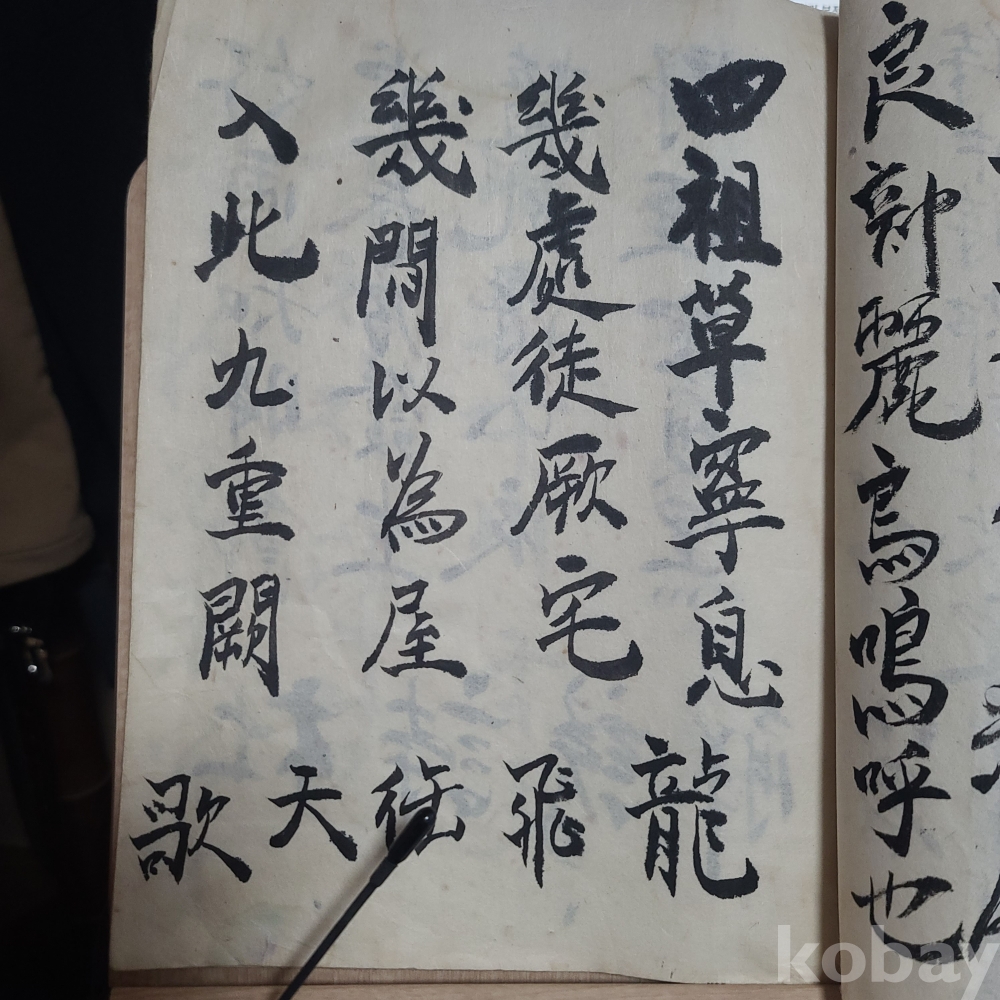 良麗烏嗚呼也
四祖草寧息
幾處徒厥宅
幾間以為屋
入此九重闕
龍飛御天歌
kobay